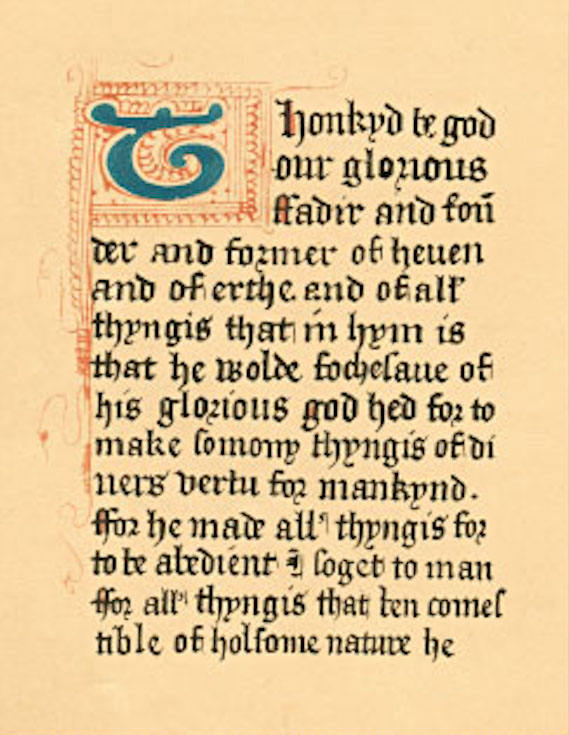 Thonkyd be god
our glorious
ffadir and foū
der and former of heuen
and of erthe and of all
thyngis that in hym is
that he wolde fochesaue of
his glorious god hed for to
make somony thyngis of di
uers vertu for mankynd.
ffor he made all thyngis for
to be abedient ⁊ soget to man
ffor all thyngis that ben comes
tible of holsome nature he